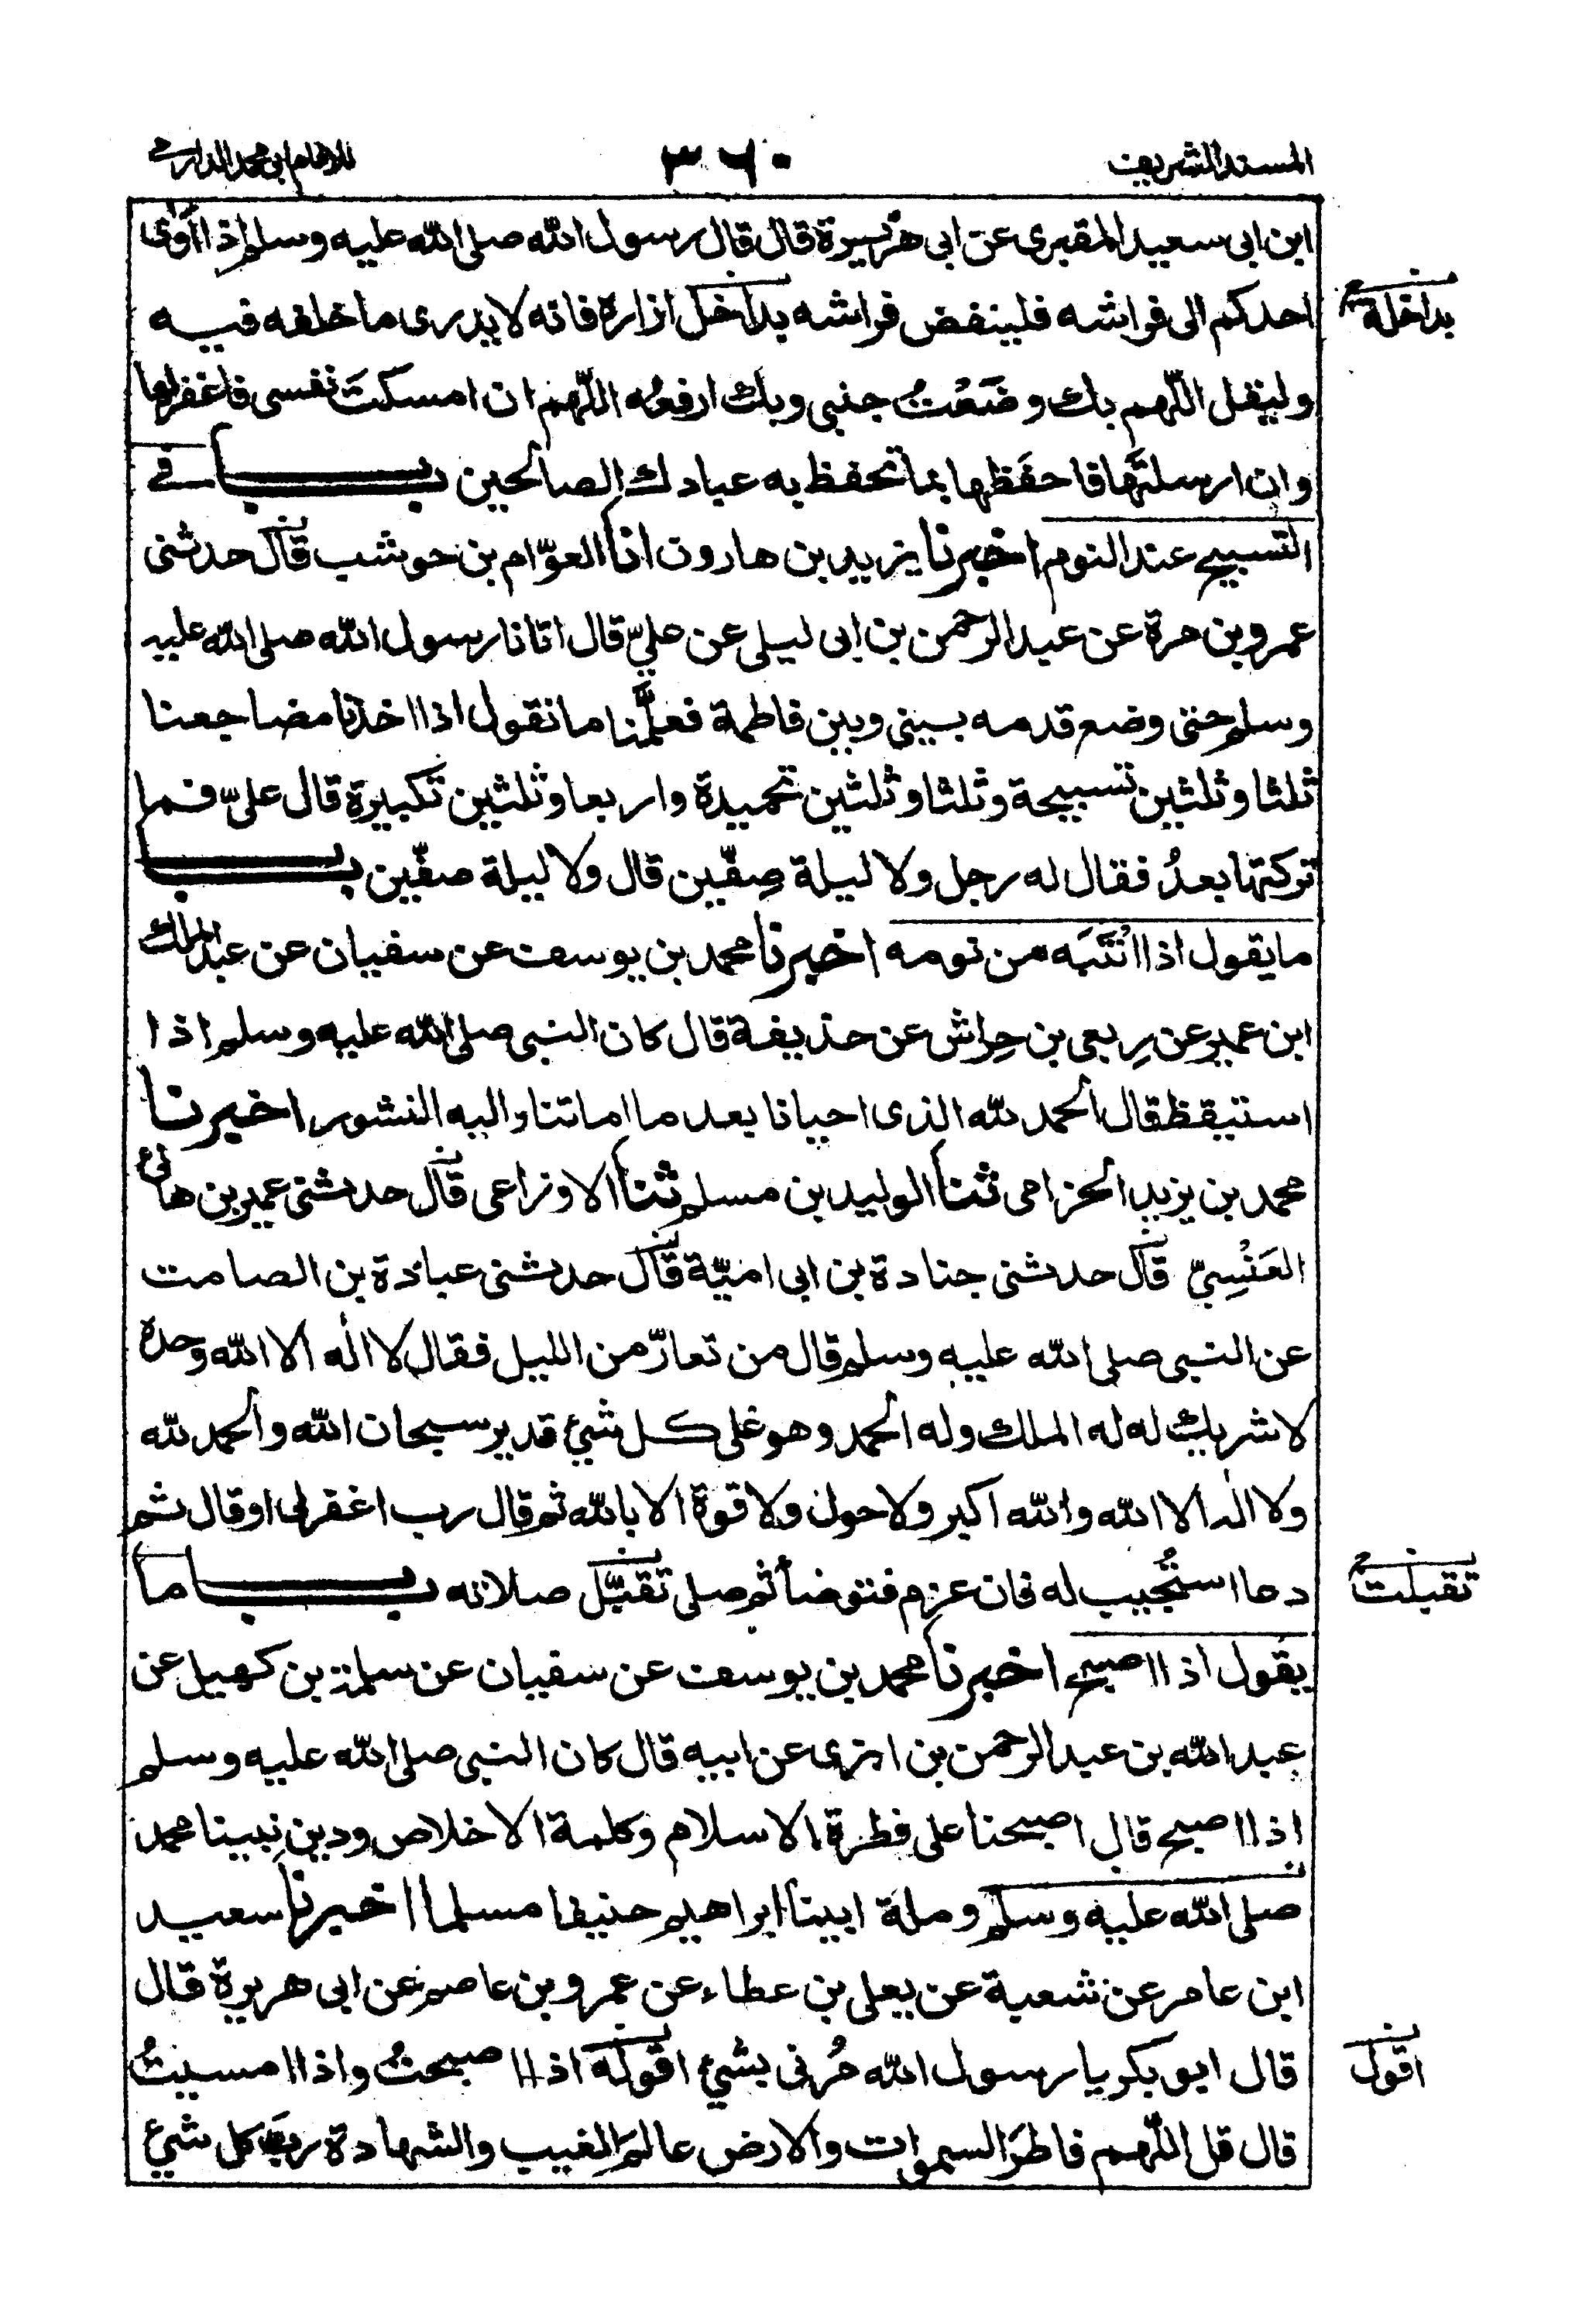 المسند الشريف
٣٦٠
للامام ابی محمد الدارمی
ابن ابی سعید المقبری عن ابی هریرة قال قال رسول الله صلی الله علیه وسلم اذا اَوٰی
احدکم الی فراشه فلینفض فراشه بداخل ازاره فانه لا یدری ما خلفه فیه
بداخلة
ولیقل اللّهم بك وضَعْتُ جنبی وبك ارفعُه اللّهم ان امسکتَ نفسی فاغفرلها
وان ارسلتَها فاحفَظها بما تحفظ به عبادك الصالحین باب فے
التسبیح عند النوم اخبرنا یزید بن هارون انا العوّام بن حوشب قال حدثنی
عمرو بن مرة عن عبد الرحمن بن ابی لیلی عن علیّ قال اتانا رسول الله صلی الله علیه
وسلم حتی وضع قدمه بینی وبین فاطمة فعلَّمنا ما نقول اذا اخذنا مضاجعنا
ثلثا وثلثین تسبیحة وثلثا وثلثین تحمیدة واربعا وثلثین تکبیرة قال علیّ فما
ترکتها بعدُ فقال له رجل ولا لیلة صِفّین قال ولا لیلة صفّین باب
ما یقول اذا انْتَبَه من نومه اخبرنا محمد بن یوسف عن سفیان عن عبد الملك
ابن عمیر عن رِبعی بن حِراش عن حذیفة قال کان النبی صلی الله علیه وسلم اذا
استیقظ قال الحمد لله الذی احیانا بعد ما اماتنا والیه النشور اخبرنا
محمد بن یزید الحزامی ثنا الولید بن مسلم ثنا الاوزاعی قال حدثنی عمیر بن هانئ
العَنْسِیّ قال حدثنی جنادة بن ابی امیّة قال حدثنی عبادة بن الصامت
عن النبی صلی الله علیه وسلم قال من تعارّ من اللیل فقال لا اله الا الله وحده
لا شریك له له الملك وله الحمد وهو علی کل شیئ قدیر سبحان الله والحمد لله
ولا اله الا الله والله اکبر ولا حول ولا قوة الا بالله ثم قال رب اغفرلی او قال ثم
دعا استُجیب له فان عزم فتوضأ ثم صلی تقبّل صلاته باب ما
تقبلت
یقول اذا اصبح اخبرنا محمد بن یوسف عن سفیان عن سلمة بن کهیل عن
عبد الله بن عبد الرحمن بن ابزی عن ابیه قال کان النبی صلی الله علیه وسلم
اذا اصبح قال اصبحنا علی فطرة الاسلام وکلمة الاخلاص ودین نبینا محمد
صلی الله علیه وسلم وملة ابینا ابراهیم حنیفا مسلما اخبرنا سعید
ابن عامر عن شعبة عن یعلی بن عطاء عن عمرو بن عاصم عن ابی هریرة قال
قال ابو بکر یا رسول الله مُرنی بشیئ اقوله اذا اصبحتُ واذا امسیتُ
اقول
قال قل اللّهم فاطرَ السموات والارض عالمَ الغیب والشهادة ربَ کل شیئ